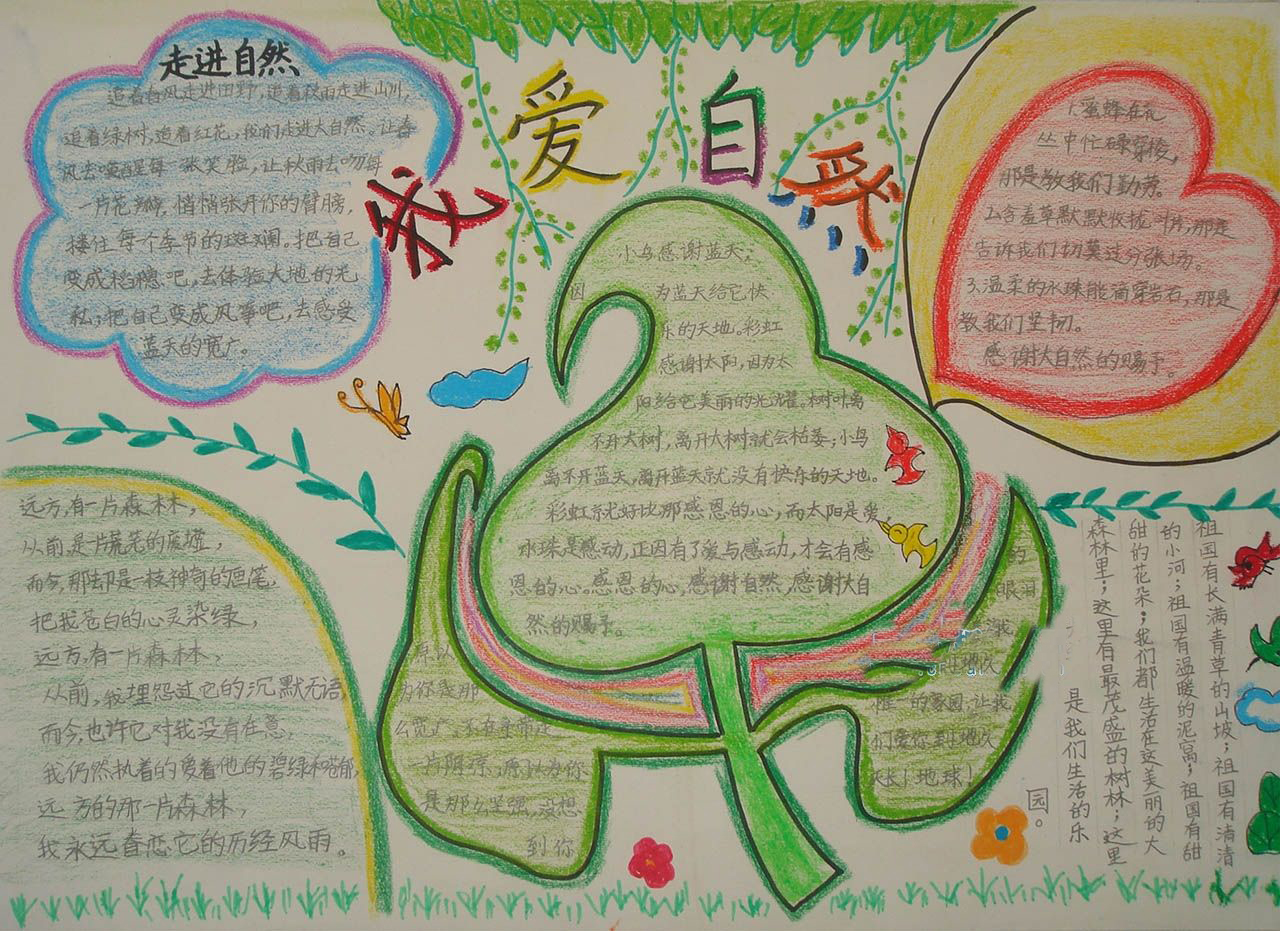 我爱自然
走进自然
追着春风走进田野,追着秋雨走进山川,
追着绿树,追着红花,我们走进大自然。让春
风去唤醒每一张笑脸,让秋雨去吻每
一片花瓣,悄悄张开你的臂膀,
搂住每个季节的斑斓。把自己
变成稻穗吧,去体验大地的无
私;把自己变成风筝吧,去感受
蓝天的宽广。
小鸟感谢蓝天;
因为蓝天给它快
乐的天地。彩虹
感谢太阳,因为太
阳给它美丽的光耀。树叶离
不开大树,离开大树就会枯萎;小鸟
离不开蓝天,离开蓝天就没有快乐的天地。
彩虹就好比那感恩的心,而太阳是爱
水珠是感动,正因有了爱与感动,才会有感
恩的心。感恩的心,感谢自然,感谢大自
然的赐予。
1.蜜蜂在花
丛中忙碌穿梭,
那是教我们勤劳。
2.含羞草默默收拢叶片,那是
告诉我们切莫过分张扬。
3.温柔的水珠能滴穿岩石,那是
教我们坚韧。
感谢大自然的赐予。
远方,有一片森林,
从前,是一片荒芜的废墟,
而今,那却是一枝神奇的画笔,
把我苍白的心灵染绿,
远方,有一片森林,
从前,我埋怨过它的沉默无语,
而今,也许它对我没有在意,
我仍然执着的爱着他的碧绿和苍郁,
远方的那一片森林,
我永远眷恋它的历经风雨。
为你是那
么宽广,不在乎
原以为你
是那么坚强,没想
到你
的
眼泪
我
地球
唯一的家园,让我
们爱你到地久
天长!地球!
祖国有长满青草的山坡;祖国有清清
的小河;祖国有温暖的泥窝;祖国有甜
甜的花朵;我们都生活在这美丽的大
森林里;这里有最茂盛的树林;这里
是我们生活的乐
园。